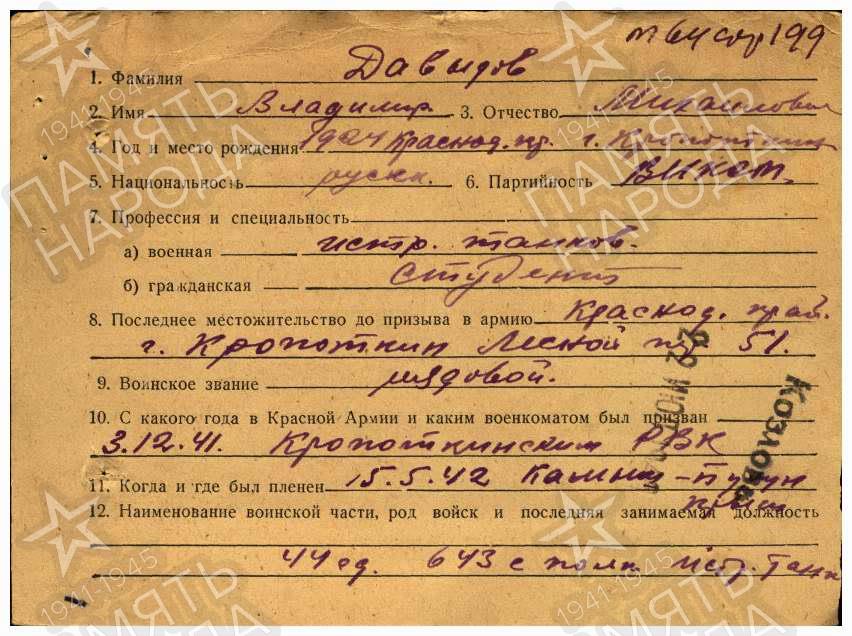 199
1. Фамилия Давыдов
2. Имя Владимир 3. Отчество Михайлович
4. Год и место рождения Краснод. кр. г. Кропоткин
5. Национальность русск. 6. Партийность
7. Профессия и специальность
а) военная истр. танков.
б) гражданская студент
8. Последнее местожительство до призыва в армию Краснод. край.
г. Кропоткин Лесной 51.
9. Воинское звание рядовой.
10. С какого года в Красной Армии и каким военкоматом был призван
3.12.41. Кропоткинским РВК
11. Когда и где был пленен 15.5.42
12. Наименование воинской части, род войск и последняя занимаемая должность
44 643 с полк истр. танк
КОЗЛОВО
ПАМЯТЬ НАРОДА
1941-1945